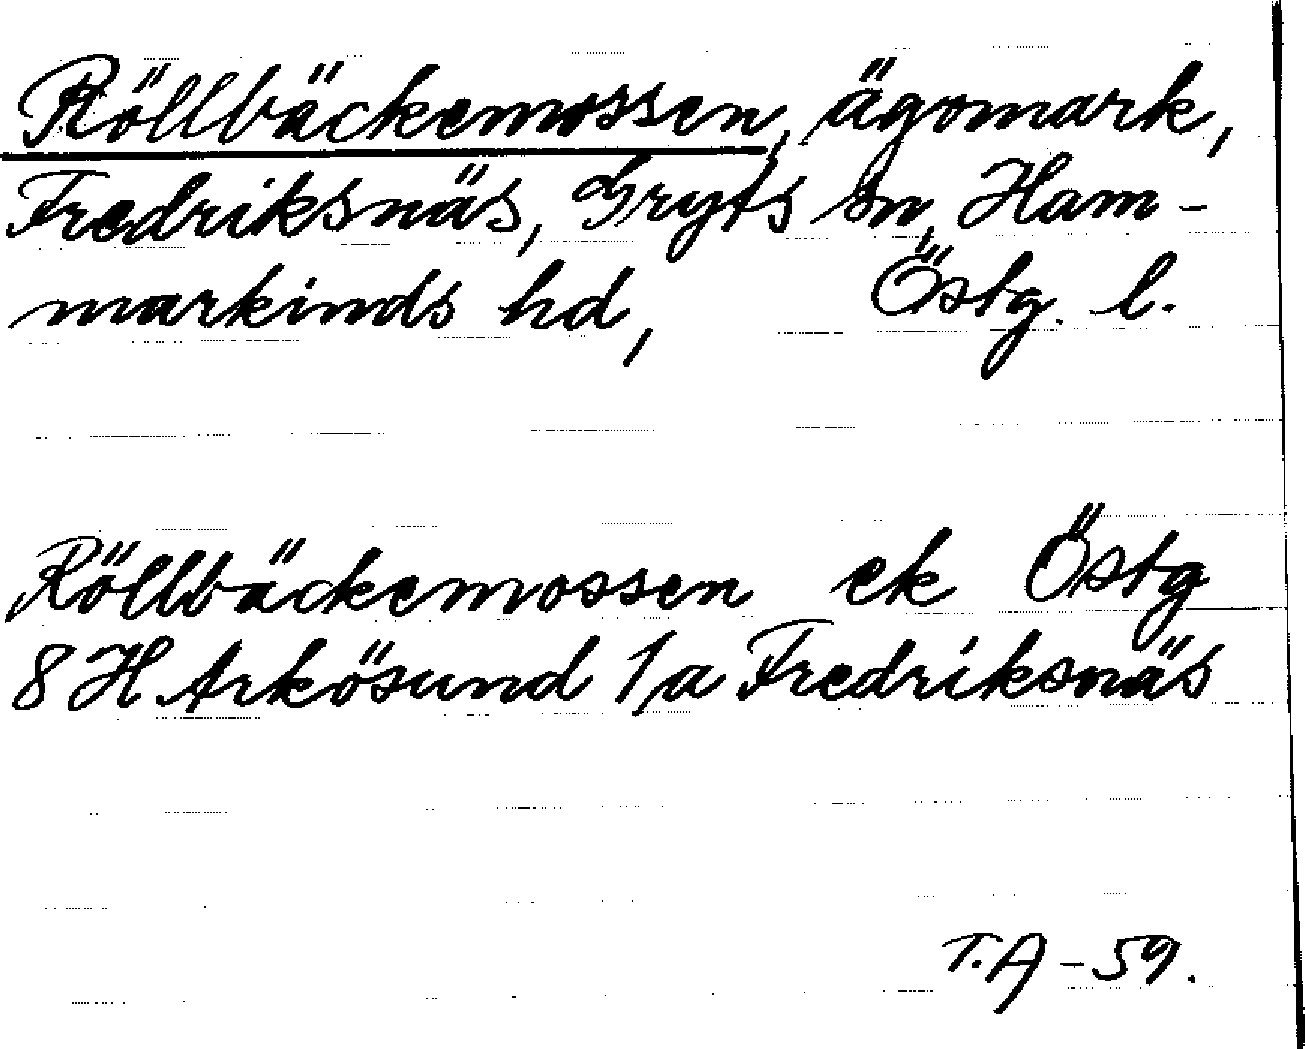 Röllbäckemossen, ägomark,
Fredriksnäs, Gryts sn, Ham-
markinds hd, Östg. l.
Röllbäckemossen ek Östg
8 H Arkösund 1/a Fredriksnäs
T.A -59.